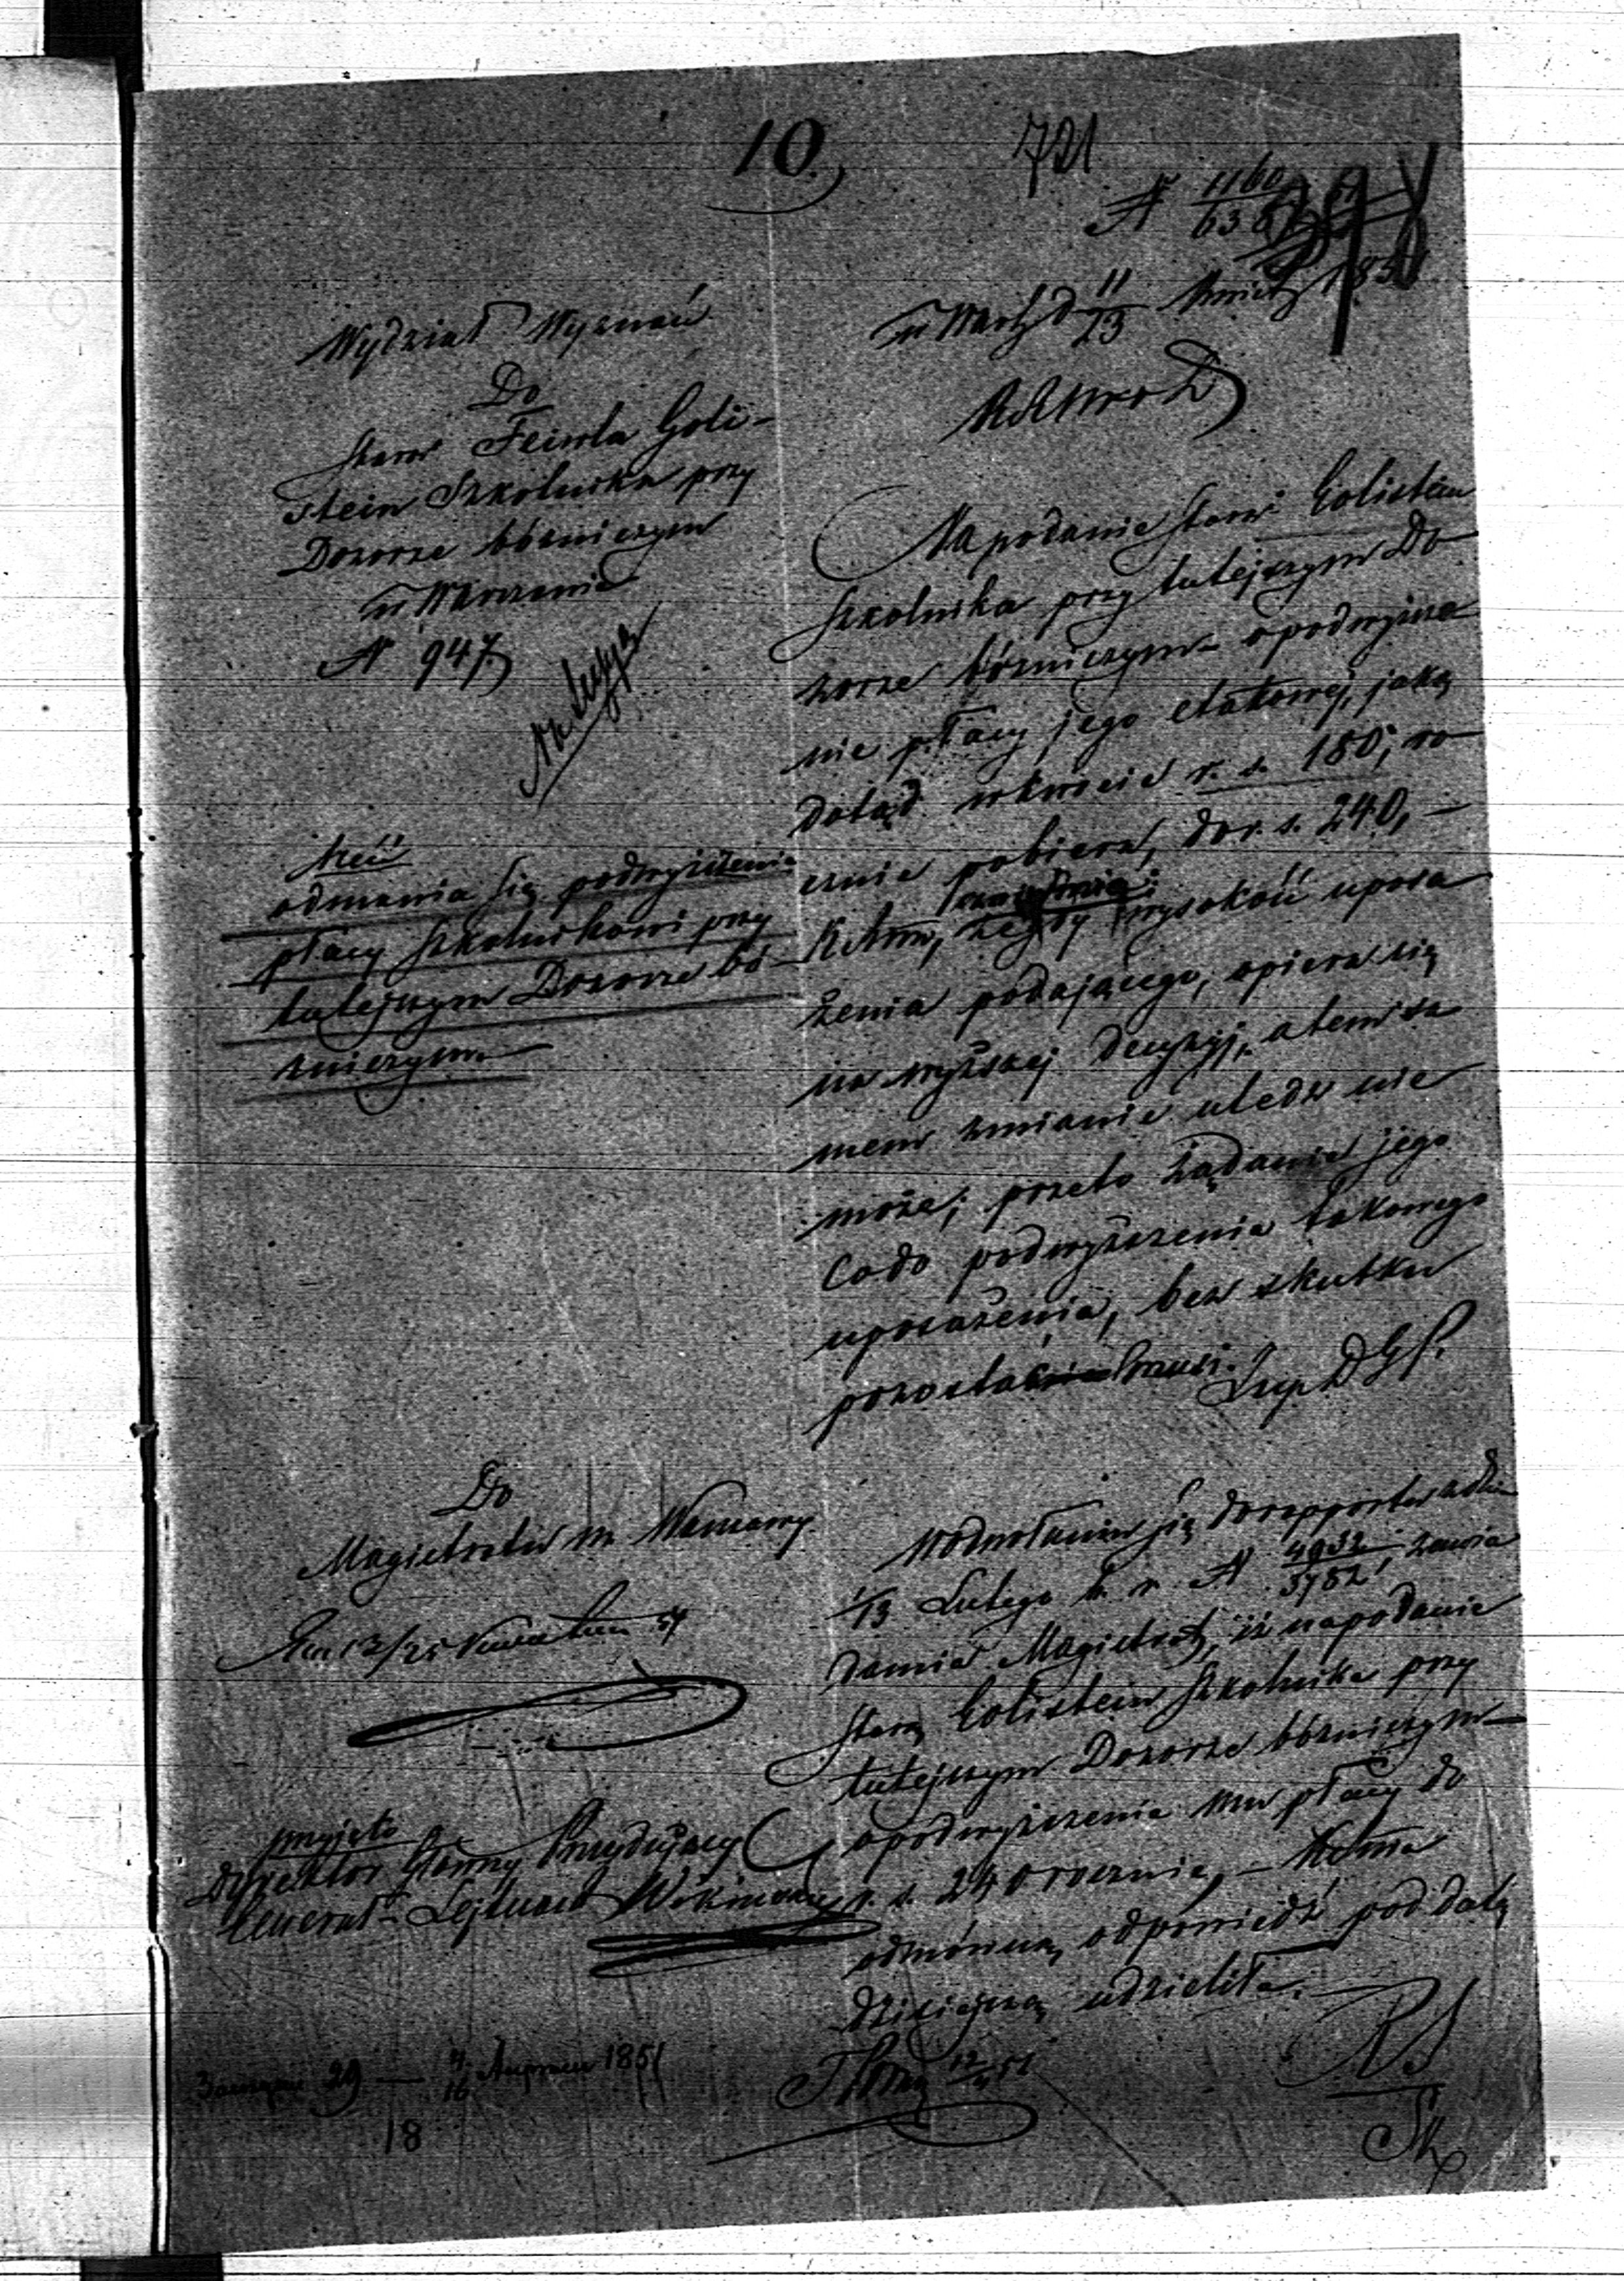 10.
721
N 1160
Wydział Wyznań
w Warsz. d 11/23 Kwiet 185
Do
Starow. Feiwla Goli-
stein Szkolnika przy
Dozorze bóżniczym
w Warszawie
N 947.
Na podanie Staroz. Golistein
Szkolnika przy tutejszym Do-
zorze bóżniczym o podwyższe-
nie płacy jego etatowej, jaką
dotąd w kwocie r. s. 180, ro-
cznie pobiera, do r. s. 240, –
wysokość uposa-
żenia podającego, opiera się
na wyższej decyzji, a temsa-
mem zmianie uledz nie
może; przeto żądanie jego
co do podwyższenia takowego
uposażenia, bez skutku
pozostać musi.
treść
odmawia się podwyższenia
płacy Szkolnikowi przy
tutejszym Dozorze bó-
żniczym
Do
Magistratu m. Warszawy
W odwołaniu się do rapportu z dnia
1/13 Lutego b. r. N 4932/3782, zawia-
damia Magistrat, iż na podanie
Staroz. Golistein Szkolnika przy
tutejszym Dozorze bóżniczym
o podwyższenie mu płacy do
r. s. 240 rocznie, –
odmówną odpowiedź pod datą
dzisiejszą udzieliła.
12/25 Kwietnia 51
przyjęto
Dyrektor Główny Prezydujący
Generał-Lejtnant Wikiński
29 — 4/16 Апреля 1851
18